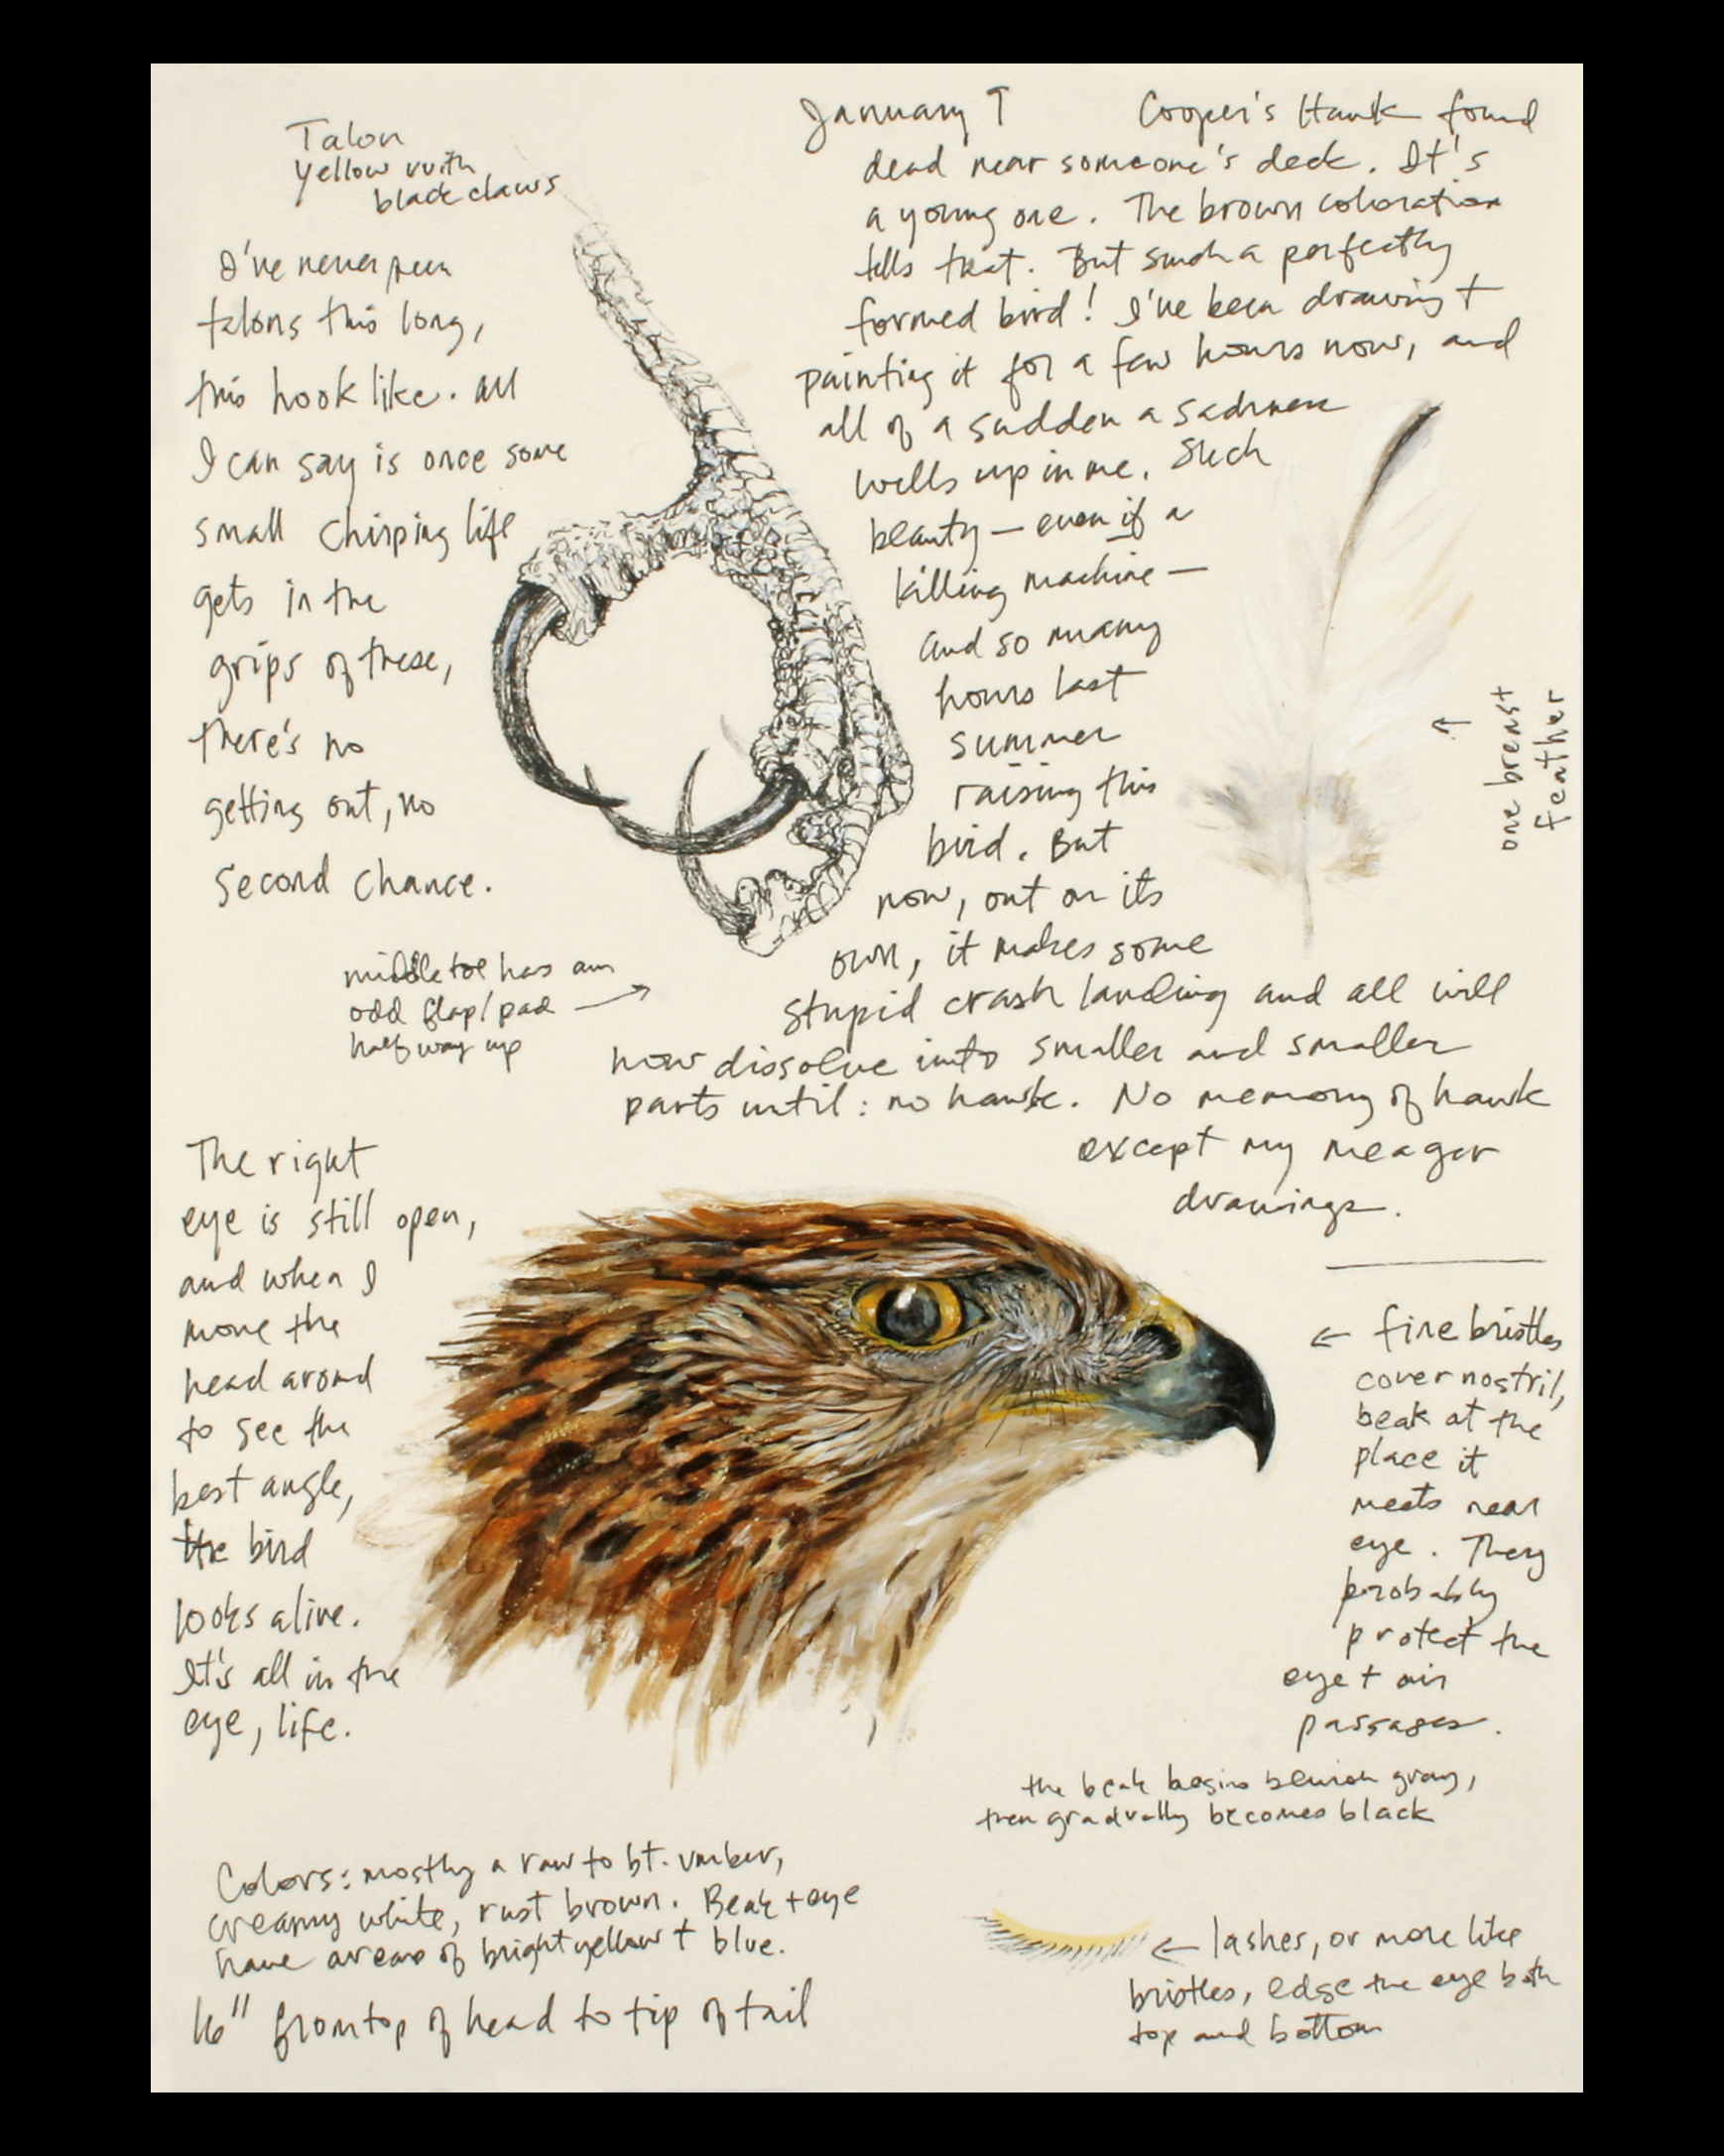 Talon
yellow with
black claws
I've never seen
talons this long,
this hook like. All
I can say is once some
small chirping life
gets in the
grips of these,
there's no
getting out, no
second chance.
middle toe has an
odd flap/pad
halfway up
January Cooper's Hawk found
dead near someone's deck. It's
a young one. The brown coloration
tells that. But such a perfectly
formed bird! I've been drawing +
painting it for a few hours now, and
all of a sudden a sadness
wells up in me. Such
beauty — even if a
killing machine —
and so many
hours last
summer
raising this
bird. But
now, out on its
own, it makes some
stupid crash landing and all will
now dissolve into smaller and smaller
parts until: no hawk. No memory of hawk
except my meager
drawings.
one breast
feather
The right
eye is still open,
and when I
move the
head around
to see the
best angle,
the bird
looks alive.
It's all in the
eye, life.
← fine bristles
cover nostril,
beak at the
place it
meets near
eye. They
probably
protect the
eye + air
passages.
the beak begins blueish gray,
then gradually becomes black
Colors: mostly a raw to bt. umber,
creamy white, rust brown. Beak + eye
have areas of bright yellow + blue.
16" from top of head to tip of tail
← lashes, or more like
bristles, edge the eye both
top and bottom